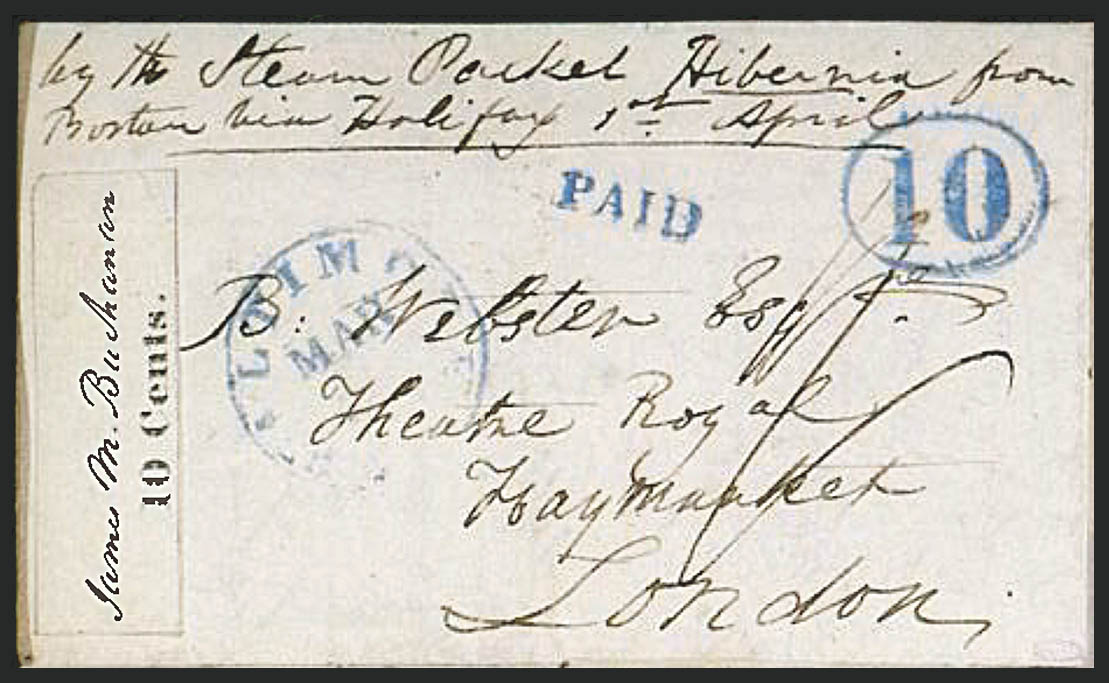 by the Steam Packet Hibernia from
Boston via Halifax 1st April
PAID
10
MAR
B. Webster Esqr.
Theatre Royal
Haymarket
London.
James M. Buchanan
10 Cents.